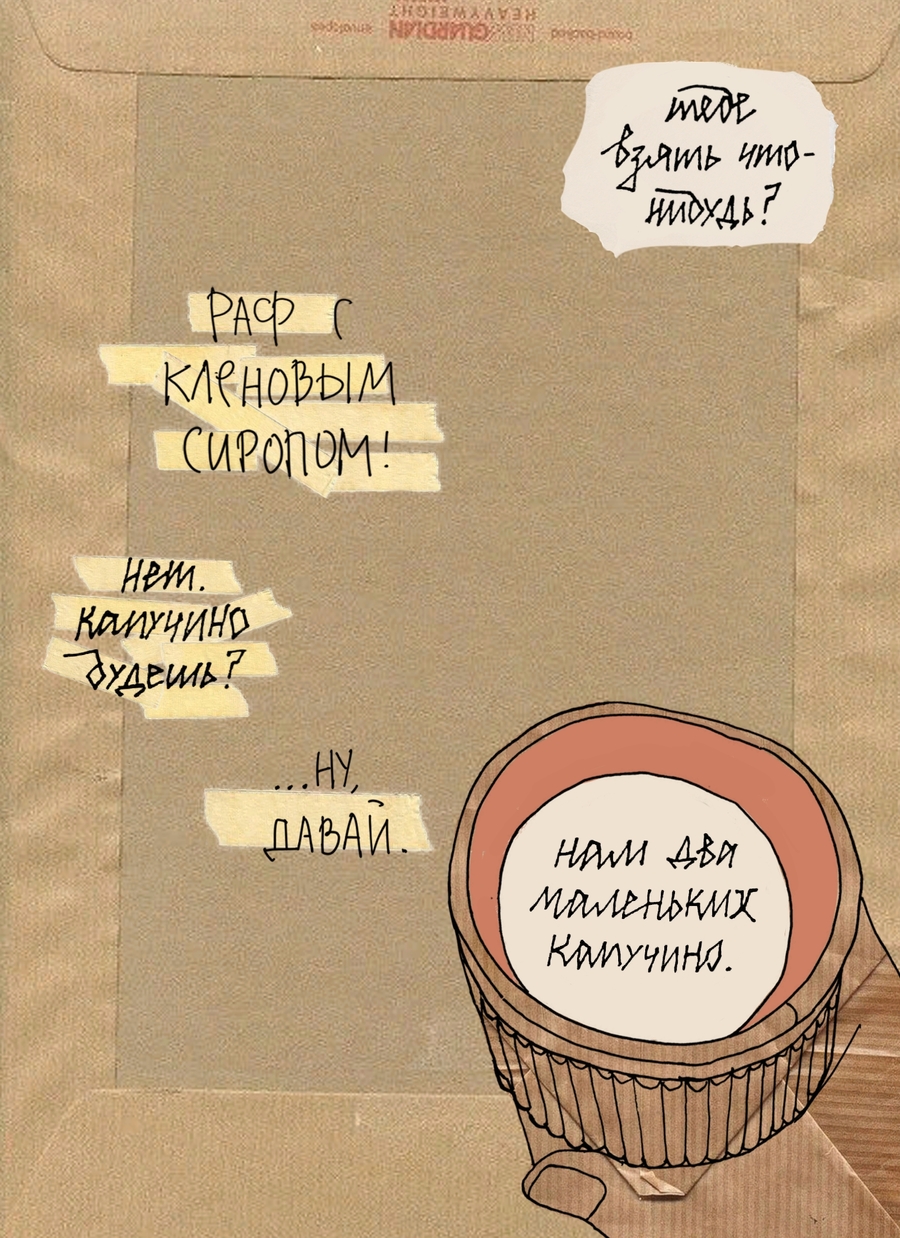 HEAVYWEIGHT
envelopes
GUARDIAN
board-backed
тебе
взять что-
нибудь?
РАФ С
КЛЕНОВЫМ
СИРОПОМ!
нет.
капучино
будешь?
...НУ,
ДАВАЙ.
нам два
маленьких
капучино.